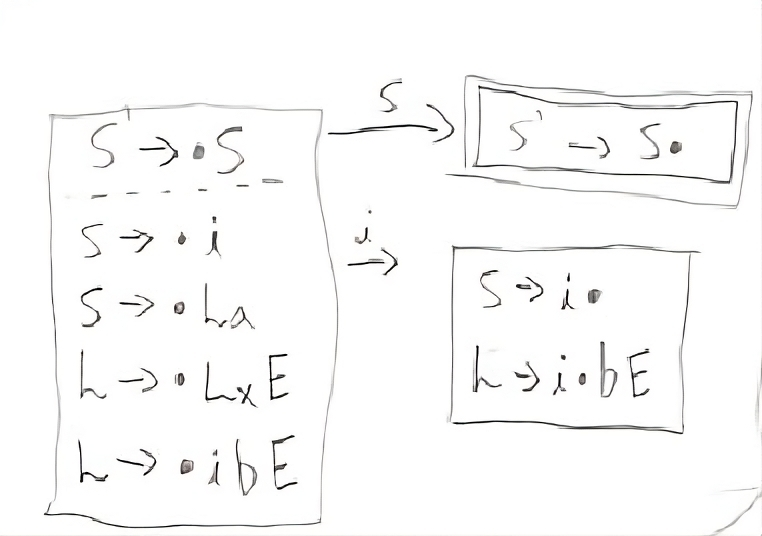 S' → •S
S → •i
S → •La
L → •LxE
L → •ibE
S
i
S' → S•
S → i•
L → i•bE